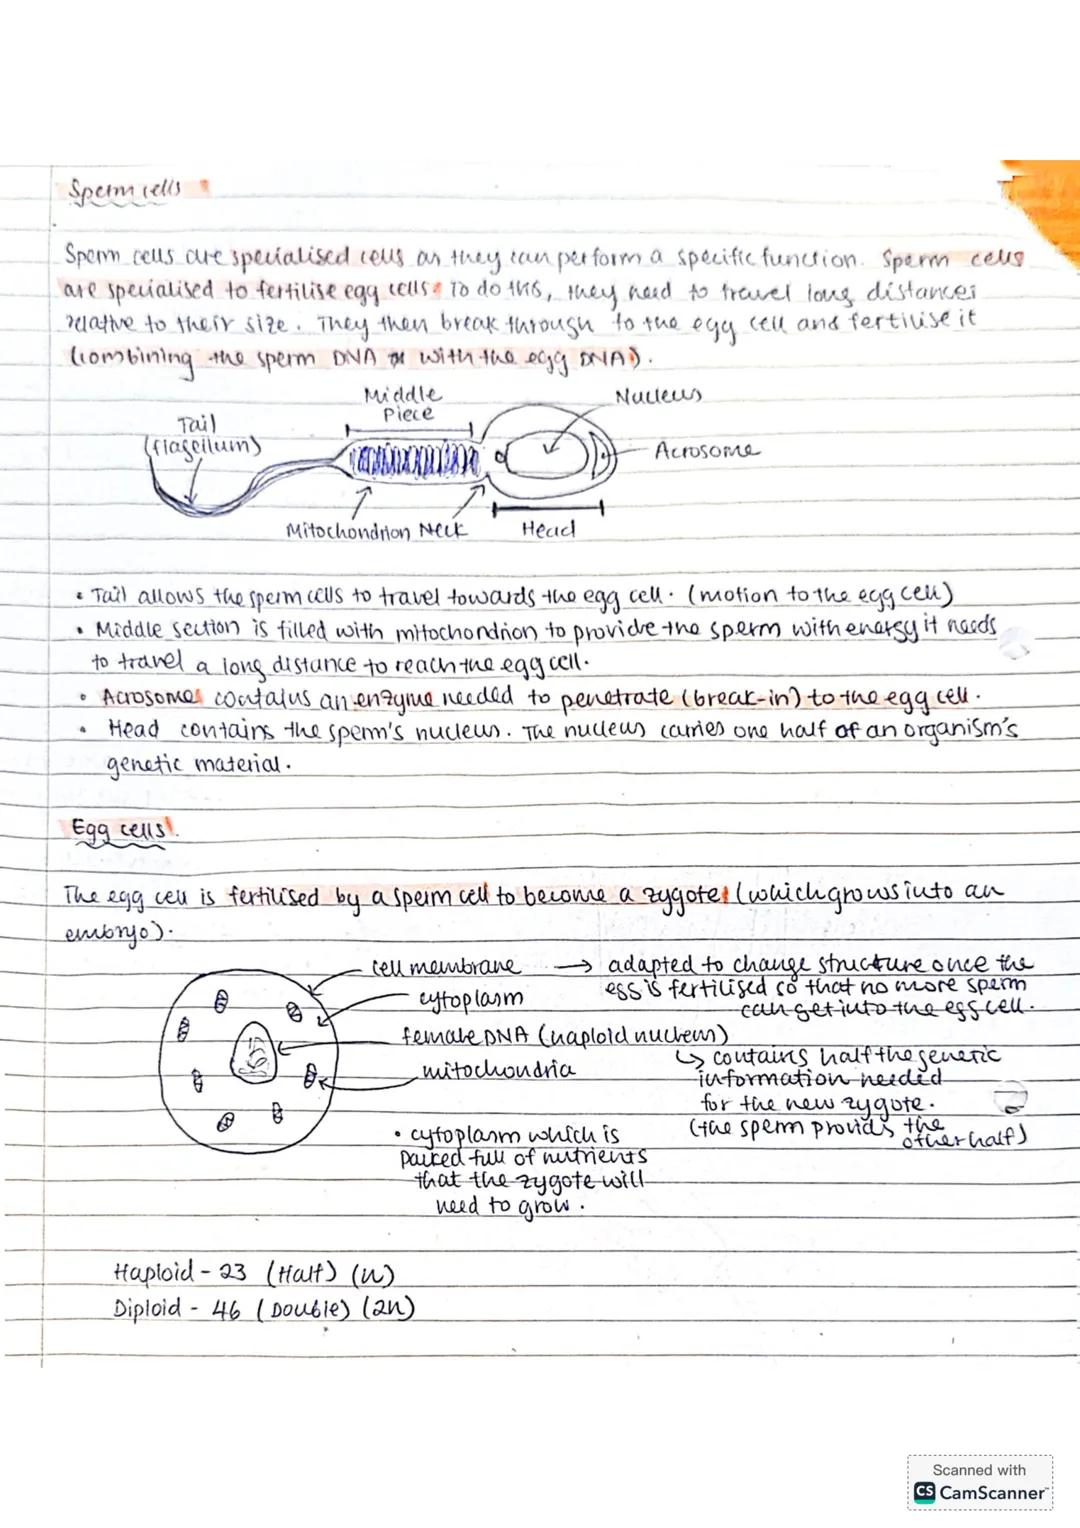 Sperm cells
Sperm cells are specialised cells as they can perform a specific function. Sperm cells
are specialised to fertilise egg cells. To do this, they need to travel long distances
relative to their size. They then break through to the egg cell and fertilise it
(combining the sperm DNA with the egg DNA).
Middle
Piece
Nucleus
Tail
(flagellum)
Acrosome
Mitochondrion Neck
Head
• Tail allows the sperm cells to travel towards the egg cell. (motion to the egg cell)
• Middle section is filled with mitochondrion to provide the sperm with energy it needs
to travel a long distance to reach the egg cell.
• Acrosome contains an enzyme needed to penetrate (break-in) to the egg cell.
• Head contains the sperm's nucleus. The nucleus carries one half of an organism's
genetic material.
Egg cells.
The egg cell is fertilised by a sperm cell to become a zygote (which grows into an
embryo).
cell membrane → adapted to change structure once the
egg is fertilised so that no more sperm
can get into the egg cell.
cytoplasm
female DNA (haploid nucleus)
↳ contains half the genetic
information needed
for the new zygote.
(the sperm provids the
other half)
mitochondria
• cytoplasm which is
packed full of nutrients
that the zygote will
need to grow.
Haploid - 23 (Half) (n)
Diploid - 46 (Double) (2n)
Scanned with
CS CamScanner